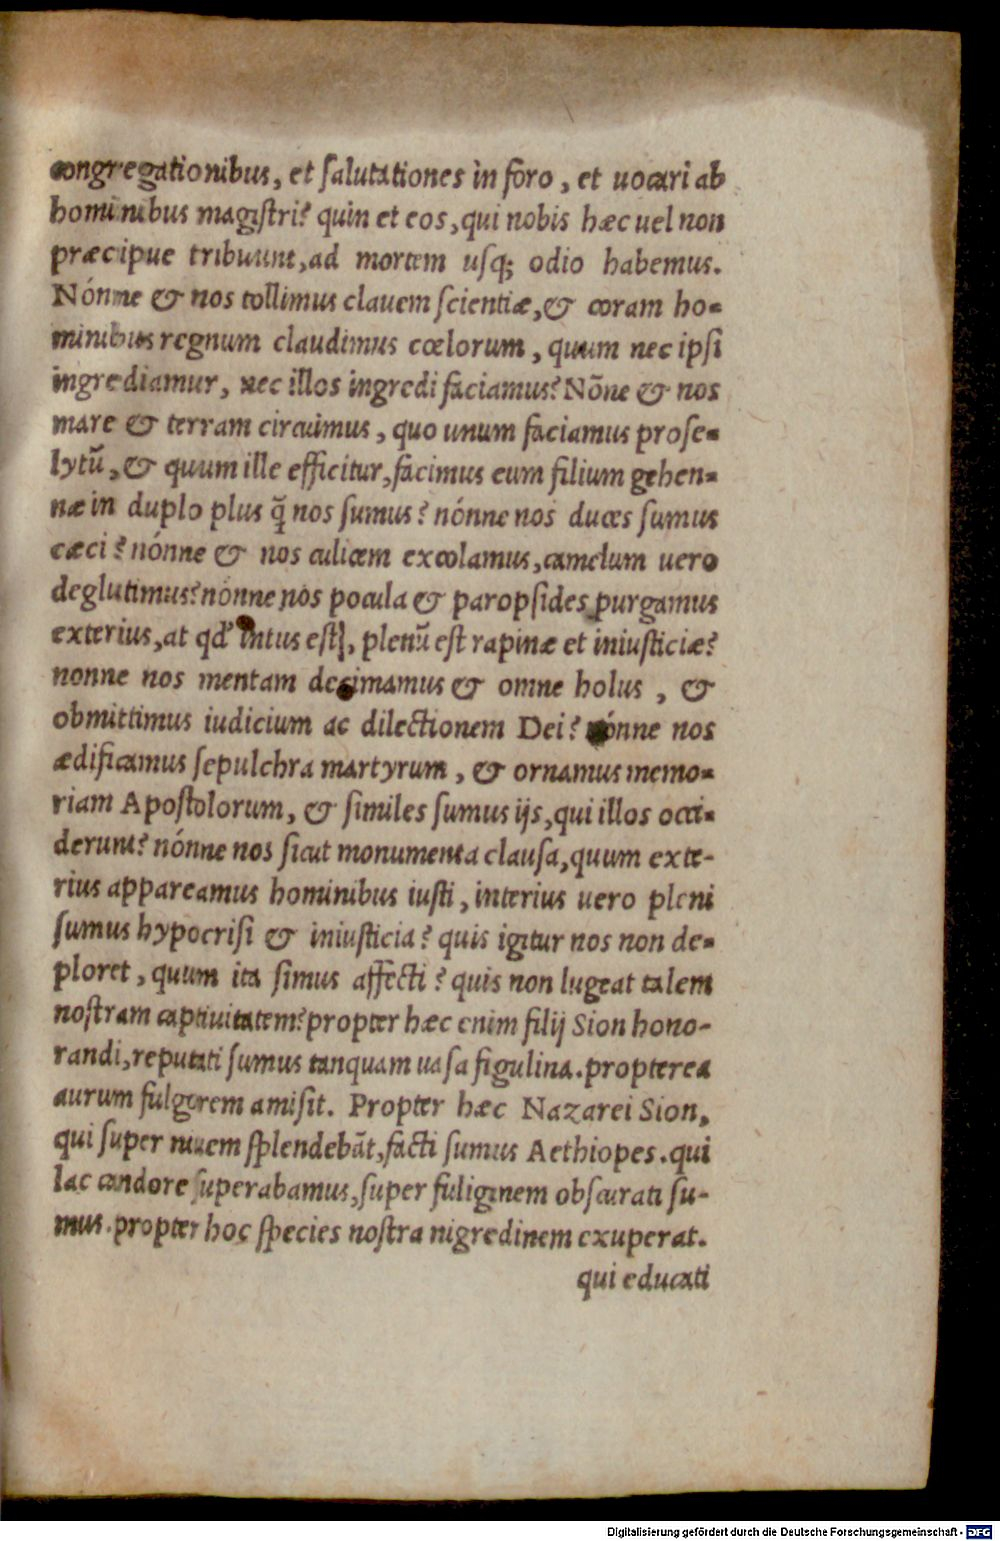 congregationibus, et salutationes in foro, et uocari ab
hominibus magistri? quin et eos, qui nobis hæc uel non
præcipue tribuunt, ad mortem usq; odio habemus.
Nónne & nos tollimus clauem scientiæ, & coram ho-
minibus regnum claudimus cœlorum, quum nec ipsi
ingrediamur, nec illos ingredi faciamus? Nõne & nos
mare & terram circuimus, quo unum faciamus prose-
lytũ, & quum ille efficitur, facimus eum filium gehen-
næ in duplo plus q̃ nos sumus? nónne nos duces sumus
cæci? nónne & nos culicem excolamus, camelum uero
deglutimus? nónne nos pocula & paropsides purgamus
exterius, at qd' intus est, plenũ est rapinæ et iniusticiæ?
nonne nos mentam decimamus & omne holus, &
obmittimus iudicium ac dilectionem Dei? nónne nos
ædificamus sepulchra martyrum, & ornamus memo-
riam Apostolorum, & similes sumus ijs, qui illos occi-
derunt? nónne nos sicut monumenta clausa, quum exte-
rius appareamus hominibus iusti, interius uero pleni
sumus hypocrisi & iniusticia? quis igitur nos non de-
ploret, quum ita simus affecti? quis non lugeat talem
nostram captiuitatem? propter hæc enim filij Sion hono-
randi, reputati sumus tanquam uasa figulina. propterea
aurum fulgorem amisit. Propter hæc Nazarei Sion,
qui super niuem splendebãt, facti sumus Aethiopes. qui
lac candore superabamus, super fuliginem obscurati su-
mus. propter hoc species nostra nigredinem exuperat.
qui educati
Digitalisierung gefördert durch die Deutsche Forschungsgemeinschaft - DFG